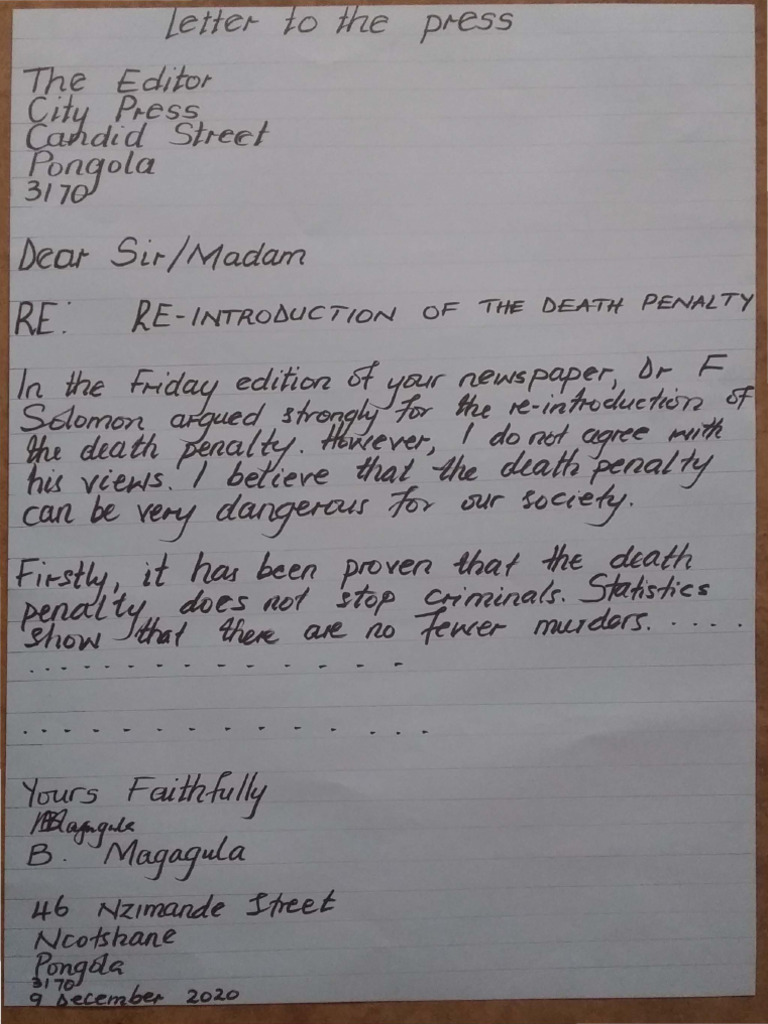 Letter to the press
The Editor
City Press
Candid Street
Pongola
3170
Dear Sir/Madam
RE: RE-INTRODUCTION OF THE DEATH PENALTY
In the Friday edition of your newspaper, Dr F
Solomon argued strongly for the re-introduction of
the death penalty. However, I do not agree with
his views. I believe that the death penalty
can be very dangerous for our society.
Firstly, it has been proven that the death
penalty does not stop criminals. Statistics
show that there are no fewer murders. . . . .
. . . . . . . . . . . . . .
. . . . . . . . . . . . . . .
Yours Faithfully
B. Magagula
46 Nzimande Street
Ncotshane
Pongola
3170
9 December 2020